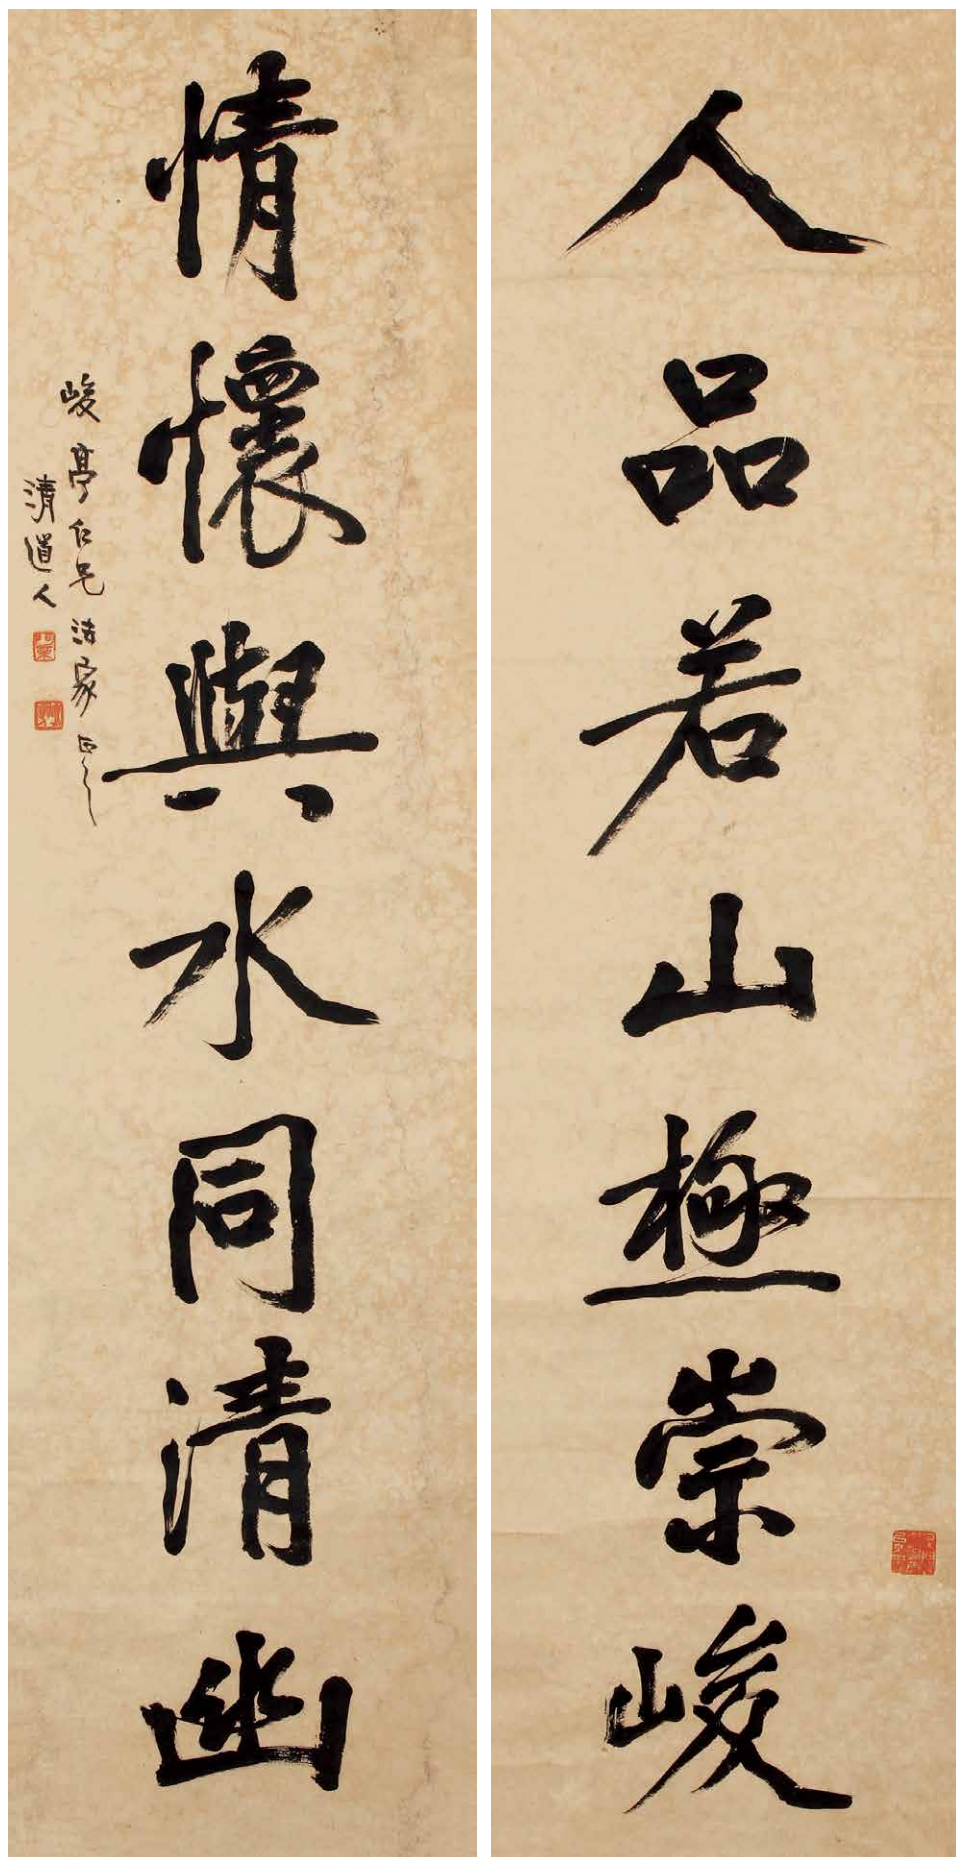 人品若山極崇峻
情懷與水同清幽
峻亭仁兄法家正之
清道人